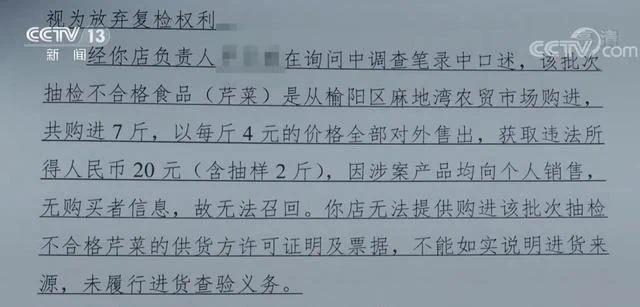 视为放弃复检权利
CCTV 13
新闻
CCTV.com
经你店负责人 在询问中调查笔录中口述，该批次
抽检不合格食品（芹菜）是从榆阳区麻地湾农贸市场购进，
共购进 7 斤，以每斤 4 元的价格全部对外售出，获取违法所
得人民币 20 元（含抽样 2 斤），因涉案产品均向个人销售，
无购买者信息，故无法召回。你店无法提供购进该批次抽检
不合格芹菜的供货方许可证明及票据，不能如实说明进货来
源，未履行进货查验义务。